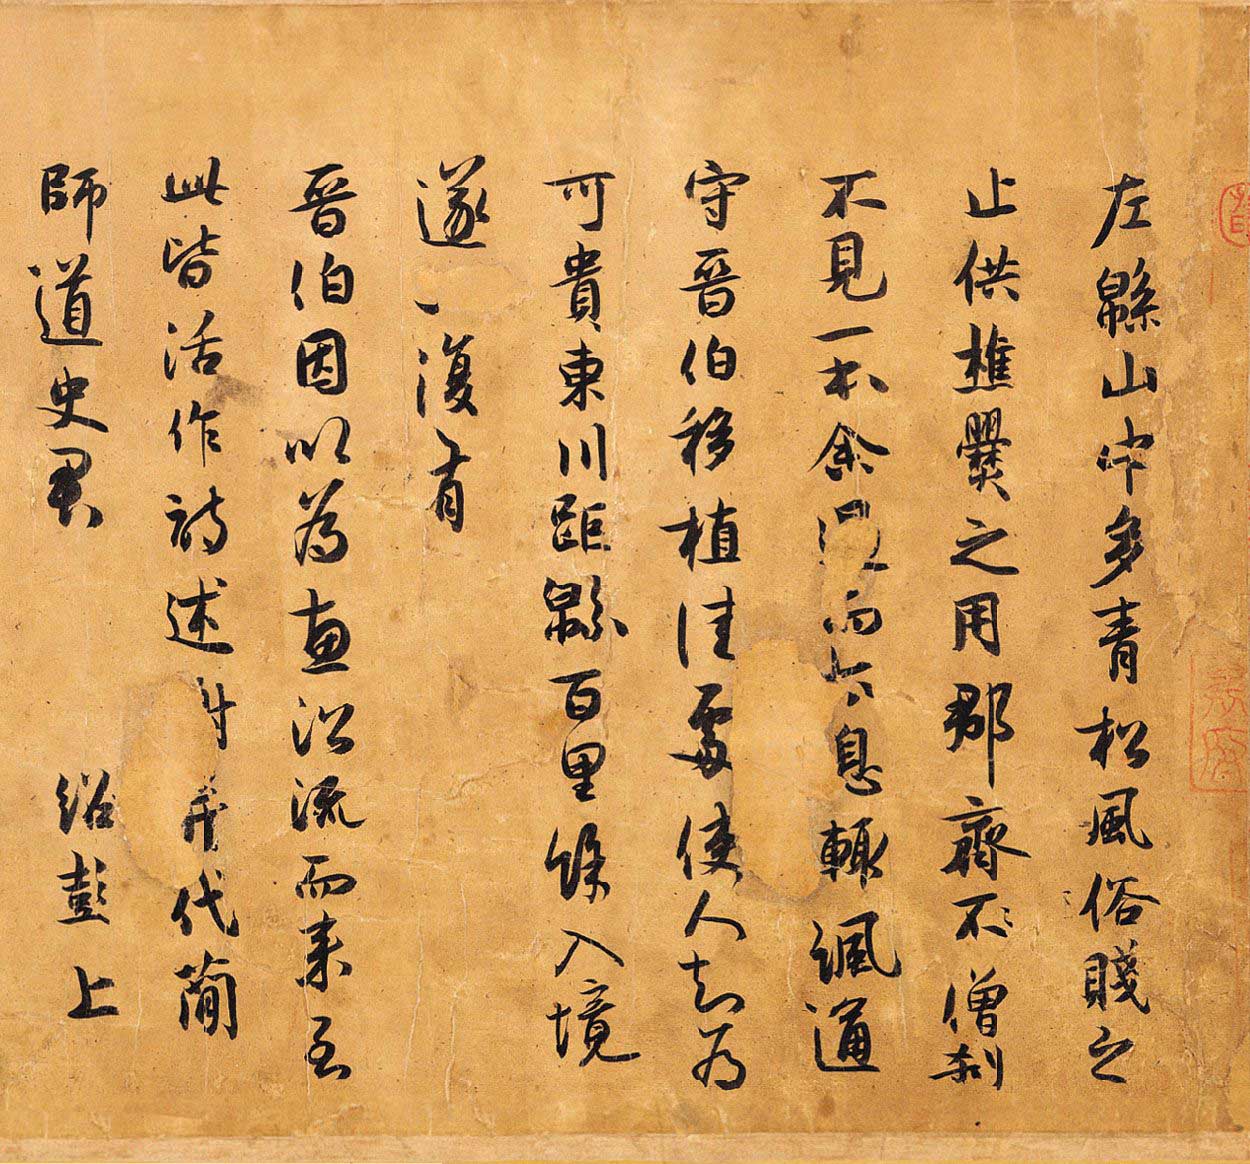 左緜山中多青松風俗賤之
止供樵爨之用郡齋不僧刹
不見一本余過而太息輙諷通
守晉伯移植佳處使人知為
可貴東川距緜百里餘入境
遂不復有
晉伯因以為惠沿流而来至
此皆活作詩述謝并代簡
師道史君 紹彭上